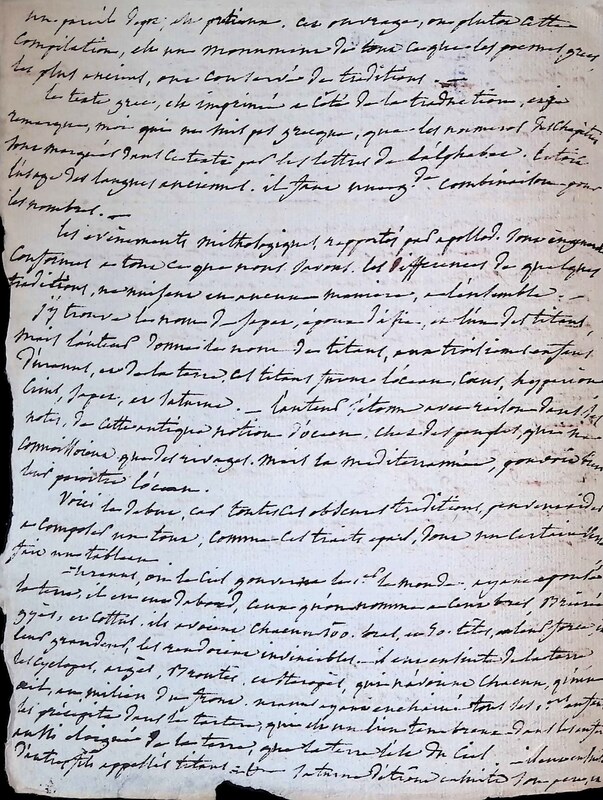 un pareil dépos, est précieux. cet ouvrage, ou plutôt cette
compilation, est un monument de tout ce que les poemes grecs
les plus anciens, ont conservé de traditions. —
le texte grec, est imprimé a côté de la traduction, et je
remarque, moi qui ne suis pas grecque, que les numeros des chapitres
sont marqués dans ce texte par les lettres de l'alphabet. C'etoit
l'usage des langues anciennes. il faut un combinaison pour
les nombres. —
les evènements mithologiques, rapportés par apollod. sont en general
conformes a tout ce que nous savons. les differences de quelques
traditions, ne nuisent en aucune maniere, a l'ensemble. —
j'y trouve le nom de japet, époux d'asie, et l'un des titans,
mais l'auteur donne le nom de titans, aux trois enfans
d'uranus, et de la terre. ces titans furent l'océan, Coeus, hyperion
Crius, japet, et saturne. — l'auteur s'étonne avec raison dans ses
notes, de cette antique notion d'océan, chez des peuples, qui ne
connoissoient que des rivages. mais la mediterrannée, pouvoit bien
leur paroitre l'océan.
Voici le debut, car toutes ces obscures traditions,
a composer un tout, comme ces traits epars, dont un certain
fait un tableau
— uranus, ou le Ciel gouverna le 1er le monde. ayant epousé
la terre, il en eut d'abord, ceux qu'on nomme a cent bras, Briarée
gygès, et cottus. ils avoient chacun 100. bras, et 50. têtes, et leur force et
leur grandeur, les rendoient invincibles. — il eut ensuite de la terre
les cyclopes, argès, Brontès, et steropès, qui n'avoient chacun, qu'un
œil, au milieu du front. uranus ayant enchainé tous les 1ers enfans
les précipita dans le tartare, qui est un lieu tenebreux dans les enfers
aussi eloigné de la terre, que la terre l'est du Ciel — il eut ensuite
d'autres fils appellés titans — saturne détrôna ensuite son pere, et